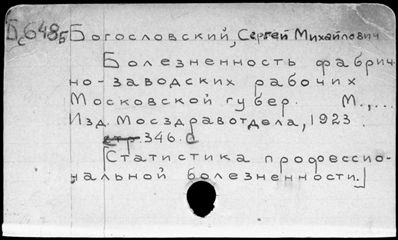 Бс648Б Богословский, Сергей Михайлович
Болезненность фабрич-
но-заводских рабочих
Московской губер. М.,...
Изд. Мосздравотдела, 1923
стр. 346. с
[Статистика профессио-
нальной болезненности.]